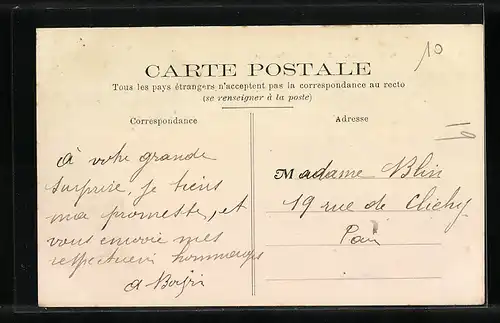 10
CARTE POSTALE
Tous les pays étrangers n'acceptent pas la correspondance au recto
(se renseigner à la poste)
Correspondance
Adresse
à votre grande
surprise, je tiens
ma promesse, et
vous envoie mes
respectueux hommages
Madame Blin
19 rue de Clichy